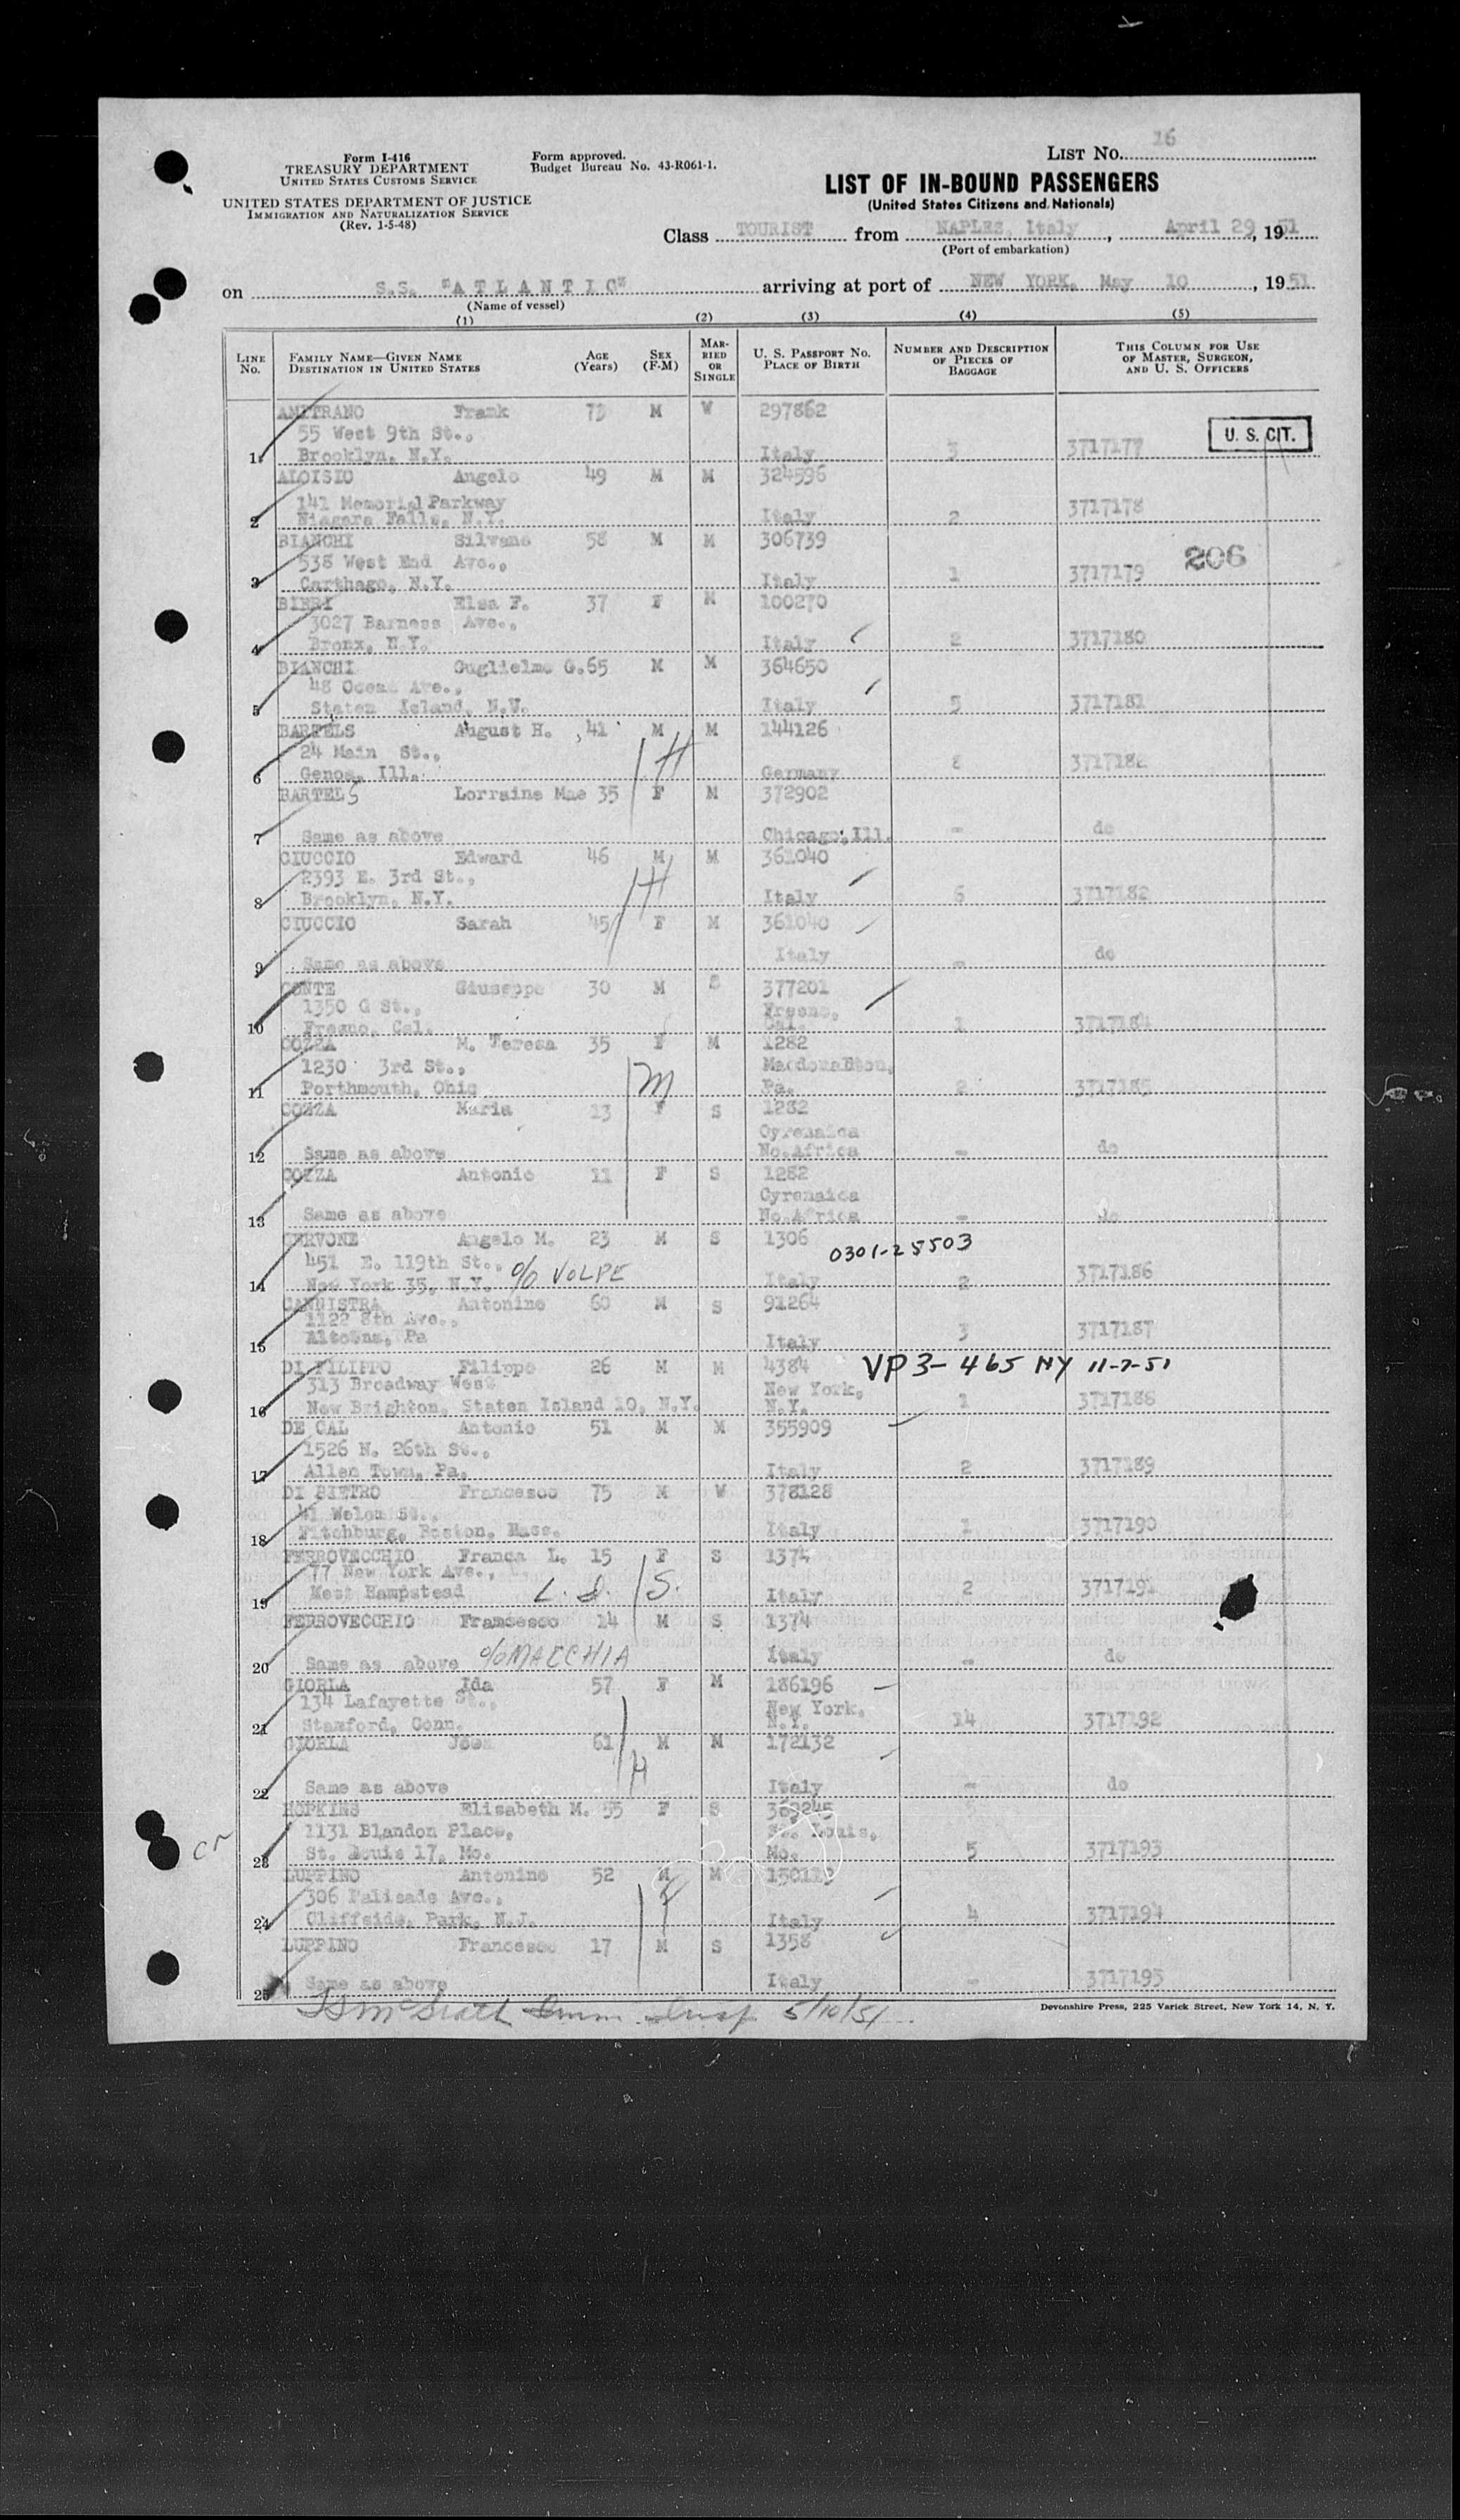 Form I-416
TREASURY DEPARTMENT
UNITED STATES CUSTOMS SERVICE
UNITED STATES DEPARTMENT OF JUSTICE
IMMIGRATION AND NATURALIZATION SERVICE
(Rev. 1-5-48)
Form approved.
Budget Bureau No. 43-R061-1.
LIST NO. 16
LIST OF IN-BOUND PASSENGERS
(United States Citizens and Nationals)
Class TOURIST from NAPLES, Italy, April 29, 1951
(Port of embarkation)
on S.S. "ATLANTIC" arriving at port of NEW YORK, May 10, 1951
(Name of vessel)
(1) (2) (3) (4) (5)
LINE NO. FAMILY NAME—GIVEN NAME DESTINATION IN UNITED STATES AGE (Years) SEX (F-M) MARRIED OR SINGLE U. S. PASSPORT NO. PLACE OF BIRTH NUMBER AND DESCRIPTION OF PIECES OF BAGGAGE THIS COLUMN FOR USE OF MASTER, SURGEON, AND U. S. OFFICERS
AMITRANO Frank 73 M W 297862
55 West 9th St.,
U. S. CIT.
1 Brooklyn, N.Y. Italy 3 3717177
ALOISIO Angelo 49 M M 324596
141 Memorial Parkway
2 Niagara Falls, N.Y. Italy 2 3717178
BIANCHI Silvano 58 M M 306739
538 West End Ave.,
206
3 Carthage, N.Y. Italy 1 3717179
BIBBY Elsa F. 37 F M 100270
3027 Barness Ave.,
4 Bronx, N.Y. Italy 2 3717180
BIANCHI Guglielmo G. 65 M M 364650
48 Ocean Ave.,
5 Staten Island, N.Y. Italy 5 3717181
BARTELS August H. 41 M M 144126
24 Main St.,
H
6 Genoa, Ill. Germany 8 3717182
BARTELS Lorraine Mae 35 F M 372902
7 Same as above Chicago, Ill. - do
CIUCCIO Edward 46 M M 361040
2393 E. 3rd St.,
H
8 Brooklyn, N.Y. Italy 6 3717182
CIUCCIO Sarah 45 F M 361040
9 Same as above Italy - do
CONTE Giuseppe 30 M S 377201
1350 G St., Fresno,
10 Fresno, Cal. Cal. 1 3717184
COZZA M. Teresa 35 F M 1282
1230 3rd St., Macdonaldton,
M
11 Porthmouth, Ohio Pa. 2 3717185
COZZA Maria 13 F S 1282
Cyrenaica
12 Same as above No.Africa - do
COZZA Antonio 11 F S 1282
Cyrenaica
13 Same as above No.Africa - do
CERVONE Angelo M. 23 M S 1306
0301-25503
451 E. 119th St.,
14 New York 35, N.Y. c/o VOLPE Italy 2 3717186
CANNISTRA Antonino 60 M S 91264
1122 8th Ave.,
15 Altoona, Pa Italy 3 3717187
DI FILIPPO Filippo 26 M M 4384 VP3-465 NY 11-7-51
313 Broadway West New York,
16 New Brighton, Staten Island 10, N.Y. N.Y. 1 3717188
DE CAL Antonio 51 M M 355909
1526 N. 26th St.,
17 Allen Town, Pa. Italy 2 3717189
DI PIETRO Francesco 75 M W 378128
18 Fitchburg, Boston, Mass. Italy 1 3717190
FERROVECCHIO Franca L. 15 F S 1374
77 New York Ave.,
19 West Hampstead L. I. S. Italy 2 3717191
FERROVECCHIO Francesco 14 M S 1374
20 Same as above c/o MACCHIA Italy - do
GIORLA Ida 57 F M 186196
134 Lafayette St., New York,
21 Stamford, Conn. N.Y. 14 3717192
GIORLA 61 M M 172132
H
22 Same as above Italy - do
HOPKINS Elisabeth M. 55 F S 363245
1131 Blandon Place, St. Louis,
23 St. Louis 17, Mo. Mo. 5 3717193
LUPPINO Antonino 52 M M
306 Palisade Ave.,
24 Cliffside, Park, N.J. Italy 4 3717194
LUPPINO Francesco 17 M S 1358
25 Same as above Italy - 3717195
McGrath Imm. Insp 5/10/51
Devonshire Press, 225 Varick Street, New York 14, N. Y.